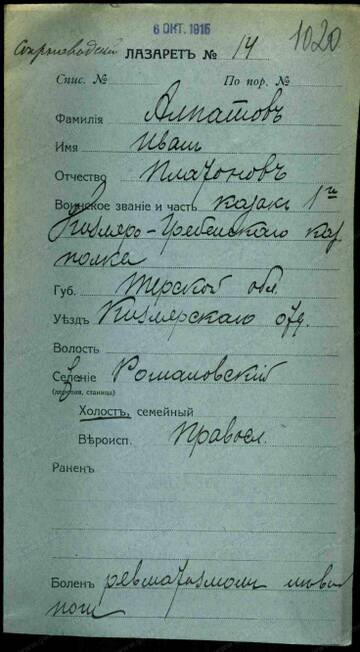 6 ОКТ. 1915
1020
ЛАЗАРЕТЪ № 14
Спис. № По пор. №
Фамилія Алпатовъ
Имя Иванъ
Отчество Платоновъ
Воинское званіе и часть казакъ 1го
Кизляро-Гребенскаго каз
полка
Губ. Терской обл.
Уѣздъ Кизлярскаго отд.
Волость
Селеніе Романовскій
(деревня, станица)
Холостъ, семейный
Вѣроисп. Правосл.
Раненъ
Боленъ ревматизмомъ
ноги